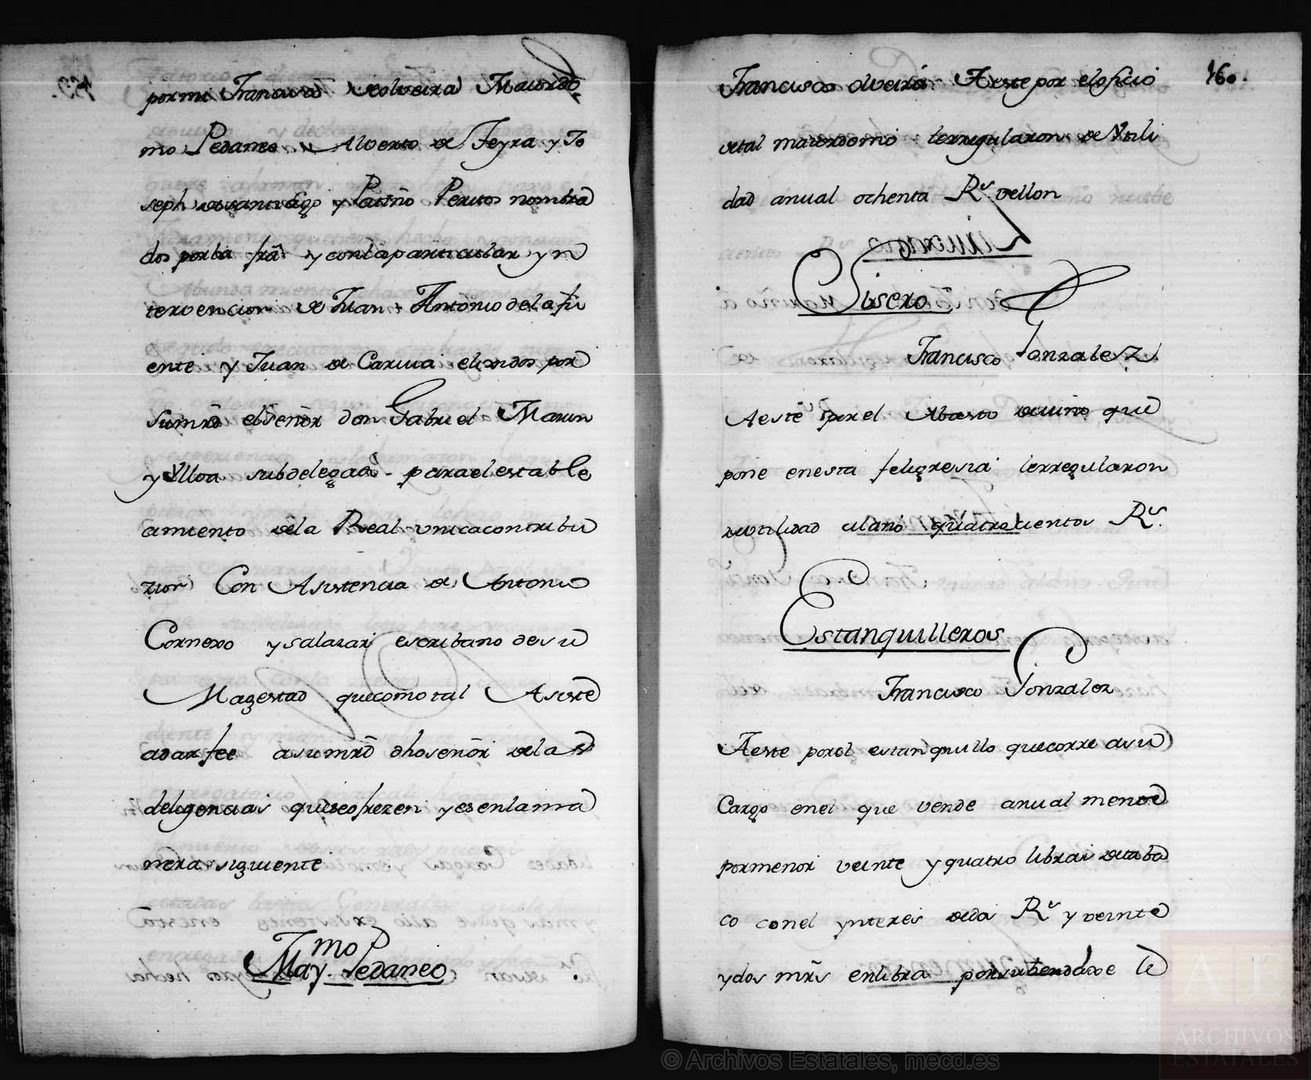 por mi Francisco de olveira Maiordo
mo Pedaneo Alverto de Feyra y Jo
seph de santiago y Patiño Peritos nombra
dos por la y con la particular yn
tervencion de Juan Antonio de la fu
ente y Juan de electos por
su mrd el señor don Gabriel Marin
y Ulloa subdelegdo para el estable
cimiento de la Real unica contribu
zion Con Asistencia de Antonio
Cornexo y salazar escribano de su
Magestad que como tal Asiste
a dar fee a su mrd dho señor de las
deligencias que se ofrezen y es en la ma
nera siguiente
Maymo Pedaneo
160.
Francisco olveira A este por el oficio
de tal maiordomo le regularon de Utili
dad anual ochenta Rs vellon
Sisero
Francisco Gonzalez
A este por el Abasto de vino que
pone en esta feligresia le regularon
de utilidad al año quatrocientos Rs
Estanquilleros
Francisco Gonzalez
A este por el estanquillo que corre a su
Cargo en el que vende anual mente
por menor veinte y quatro libras de taba
co con el ynteres de dos Rs y veinte
y dos mrs en libra le
© Archivos Estatales, mecd.es
AE
ARCHIVOS
ESTATALES